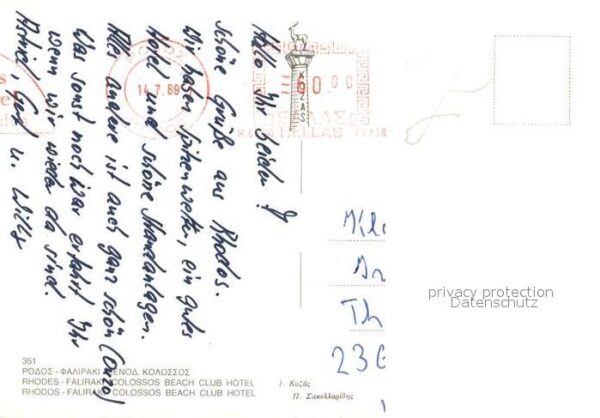 Hallo Ihr beiden!
Schöne Grüße aus Rhodos.
Wir haben Spitzenwetter, ein gutes
Hotel und schöne Strandanlagen.
Alles andere ist auch ganz schön (Ouzo)
Was sonst noch war erfahrt Ihr
wenn wir wieder da sind.
Astrid, u. Willi
14.7.89
60 00
ΕΛΛΑΣ
HELLAS
ΚΟΖΑΣ
Kl
An
Th
236
privacy protection
Datenschutz
351
ΡΟΔΟΣ - ΦΑΛΙΡΑΚΙ ΞΕΝΟΔ. ΚΟΛΟΣΣΟΣ
RHODES - FALIRAKI COLOSSOS BEACH CLUB HOTEL
RHODOS - FALIRAKI COLOSSOS BEACH CLUB HOTEL
Ι. Κοζάς
Π. Σακελλαρίδης